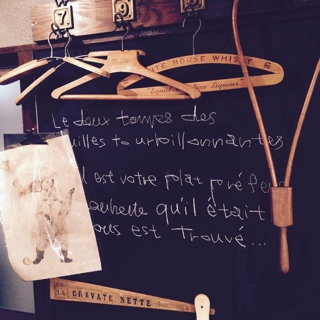 7 9 8
TE HORSE WHISKY
Le deux temps des
uilles tourbillonnantes
est votre plat préfé
ouhaite qu'il était
ous est Trouvé...
LA CRAVATE NETTE